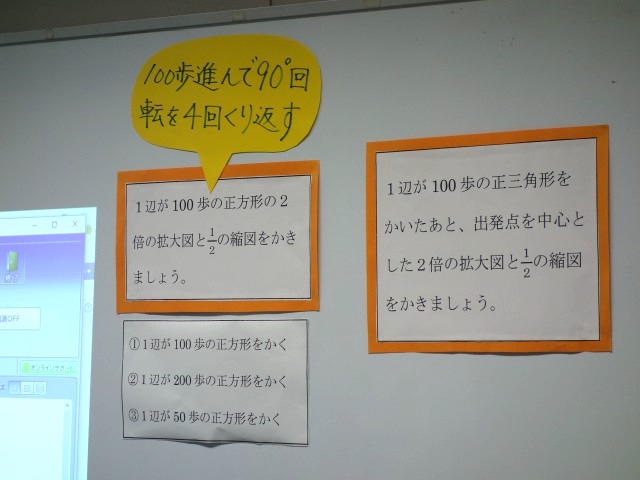 100歩進んで90°回
転を4回くり返す
1辺が100歩の正方形の2
倍の拡大図と1/2の縮図をかき
ましょう。
①1辺が100歩の正方形をかく
②1辺が200歩の正方形をかく
③1辺が50歩の正方形をかく
1辺が100歩の正三角形を
かいたあと、出発点を中心と
した2倍の拡大図と1/2の縮図
をかきましょう。
オンラインサポート